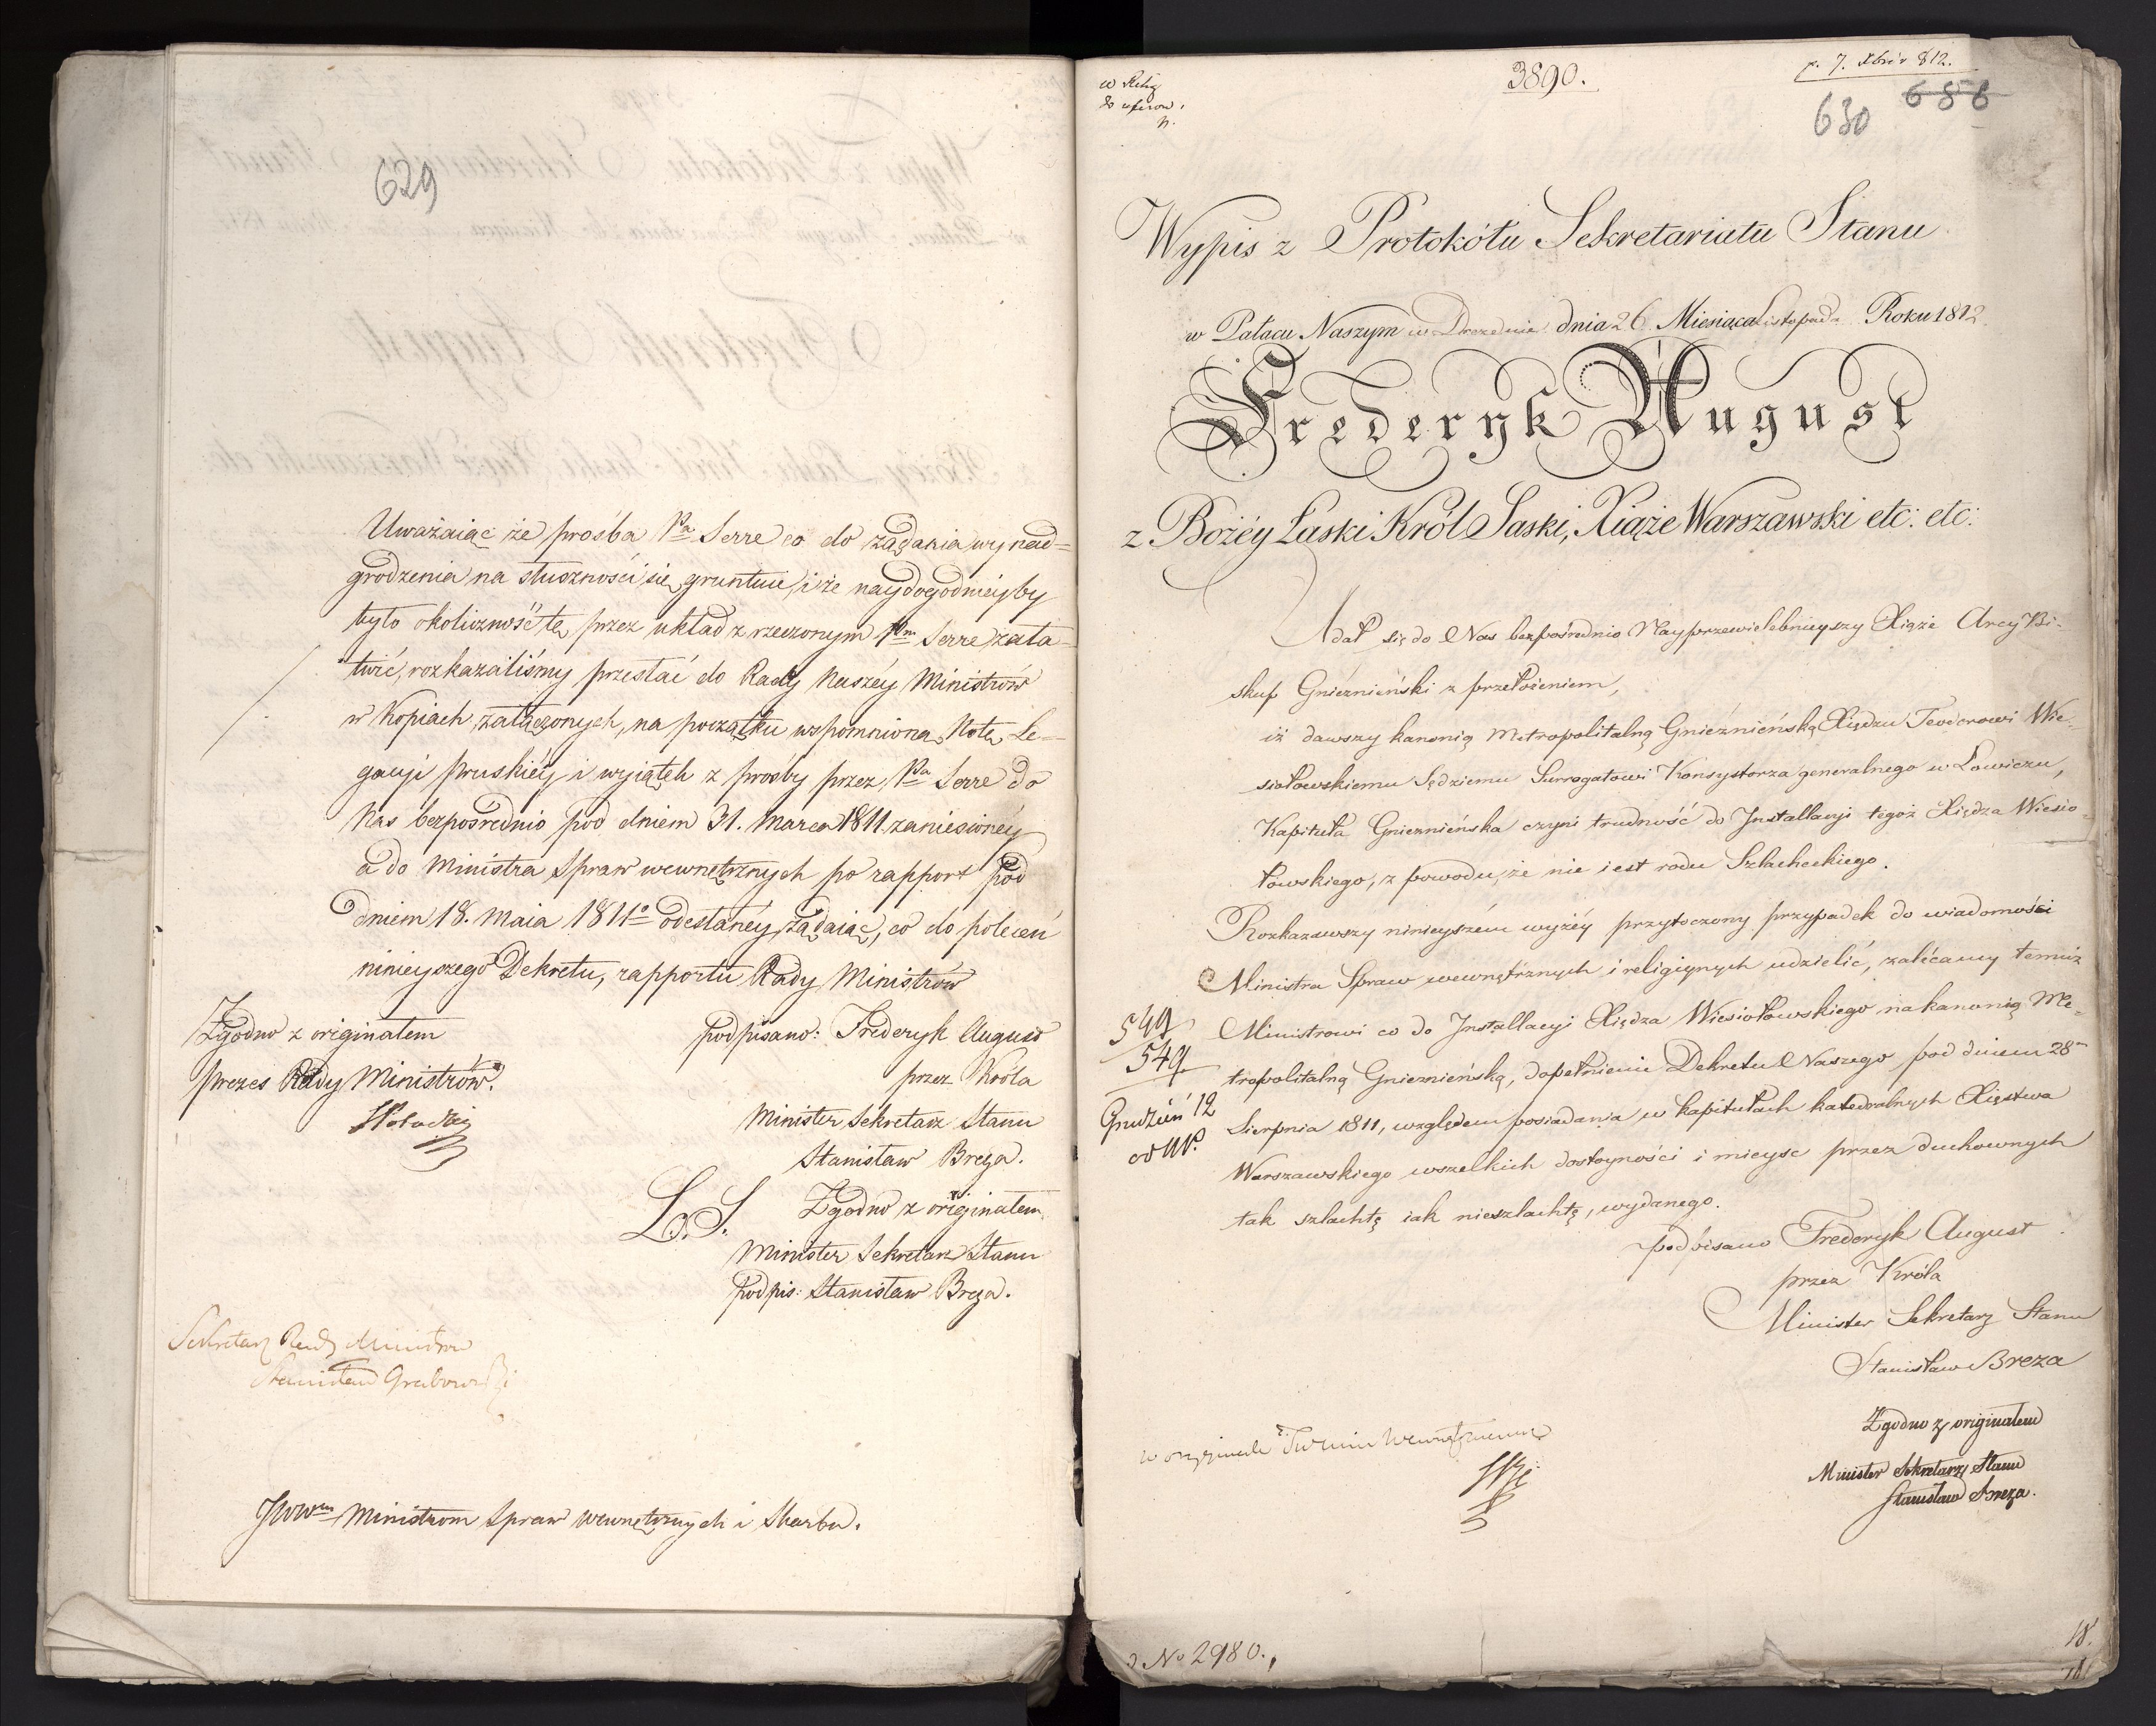 629
Uważaiąc że prośba Pa Serre co do żądania wynad=
grodzenia na słuszności się gruntuie, i że naydogodnieyby
było okoliczność tę przez układ z rzeczonym Pm Serre zała=
twić, rozkazaliśmy przesłać do Rady Naszéy Ministrów
w Kopiach załączonych, na początku wspomnioną Notę Le=
gacyi Pruskiéy i wyiątek z prośby przez Pa Serre do
Nas bezpośrednio pod dniem 31. Marca 1811 zaniesionéy
a do Ministra Spraw wewnętrznych po rapport pod
dniem 18. Maia 1811o odesłanéy, żądaiąc, co do poleceń
ninieyszego Dekretu, rapportu Rady Ministrów
Zgodno z originałem
Prezes Rady Ministrów.
podpisano: Frederyk August
przez Króla
Minister Sekretarz Stanu
Stanisław Breza.
L. S. Zgodno z originałem
Minister Sekretarz Stanu
Podpis: Stanisław Breza.
Sekretarz Rady Ministrow
Stanisław Grabowski
JWWm Ministrom Spraw wewnętrznych i Skarbu.
3890.
p. 7. Xbris 812.
630 686
Wypis z Protokółu Sekretariatu Stanu
w Pałacu Naszym w Dreznie dnia 26 Miesiąca Listopada Roku 1812
Frederyk August
z Bożéy Łaski Król Saski, Xiąże Warszawski etc: etc:
Udał się do Nas bezpośrednio Nayprzewielebnieyszy Xiąże Arcy Bi-
skup Gnieźnieński z przełożeniem,
iż dawszy kanonią Metropolitalną Gnieźnieńską Xiędzu Teodorowi Wie-
siołowskiemu Sędziemu Surrogatowi Konsystorza generalnego w Łowiczu,
Kapituła Gnieznieńska czyni trudność do Installacyi tegoż Xiędza Wiesio=
łowskiego, z powodu, że nie iest rodu Szlacheckiego.
Rozkazawszy ninieyszém wyżéy przytoczony przypadek do wiadomości
Ministra Spraw wewnętrznych i religiynych udzielić, zalécamy temuż
Ministrowi co do Installacyi Xiędza Wiesiołowskiego na kanonią Me=
tropolitalną Gnieznieńską, dopełnienie Dekretu Naszego pod dniem 28m
Sierpnia 1811, względem posiadania w kapitułach katedralnych Xięstwa
Warszawskiego wszelkich dostoyności i mieysc przez duchownych
tak szlachtę iak nieszlachtę, wydanego.
549
549
Grudzień 12
podpisano Frederyk August
przez Króla
Minister Sekretarz Stanu
Stanisław Breza
Zgodno z originałem
Minister Sekretarz Stanu
Stanisław Breza.
No 2980.
18.